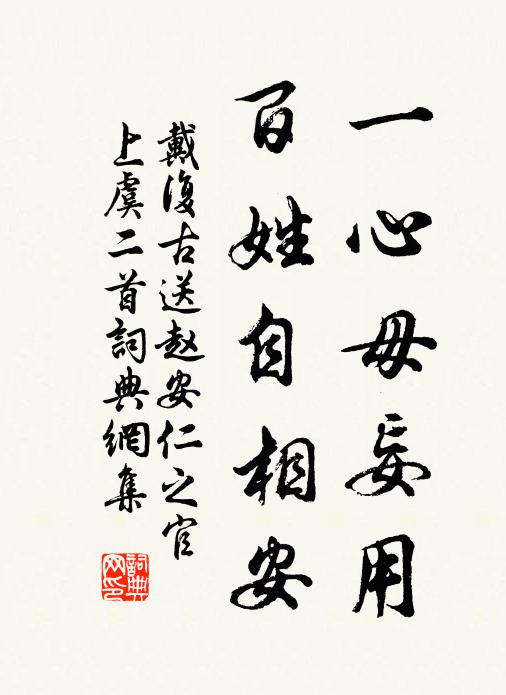 一心毋妄用
百姓自相安
戴復古送赵安仁之官
上虞二首詞典網集
詞典
网印